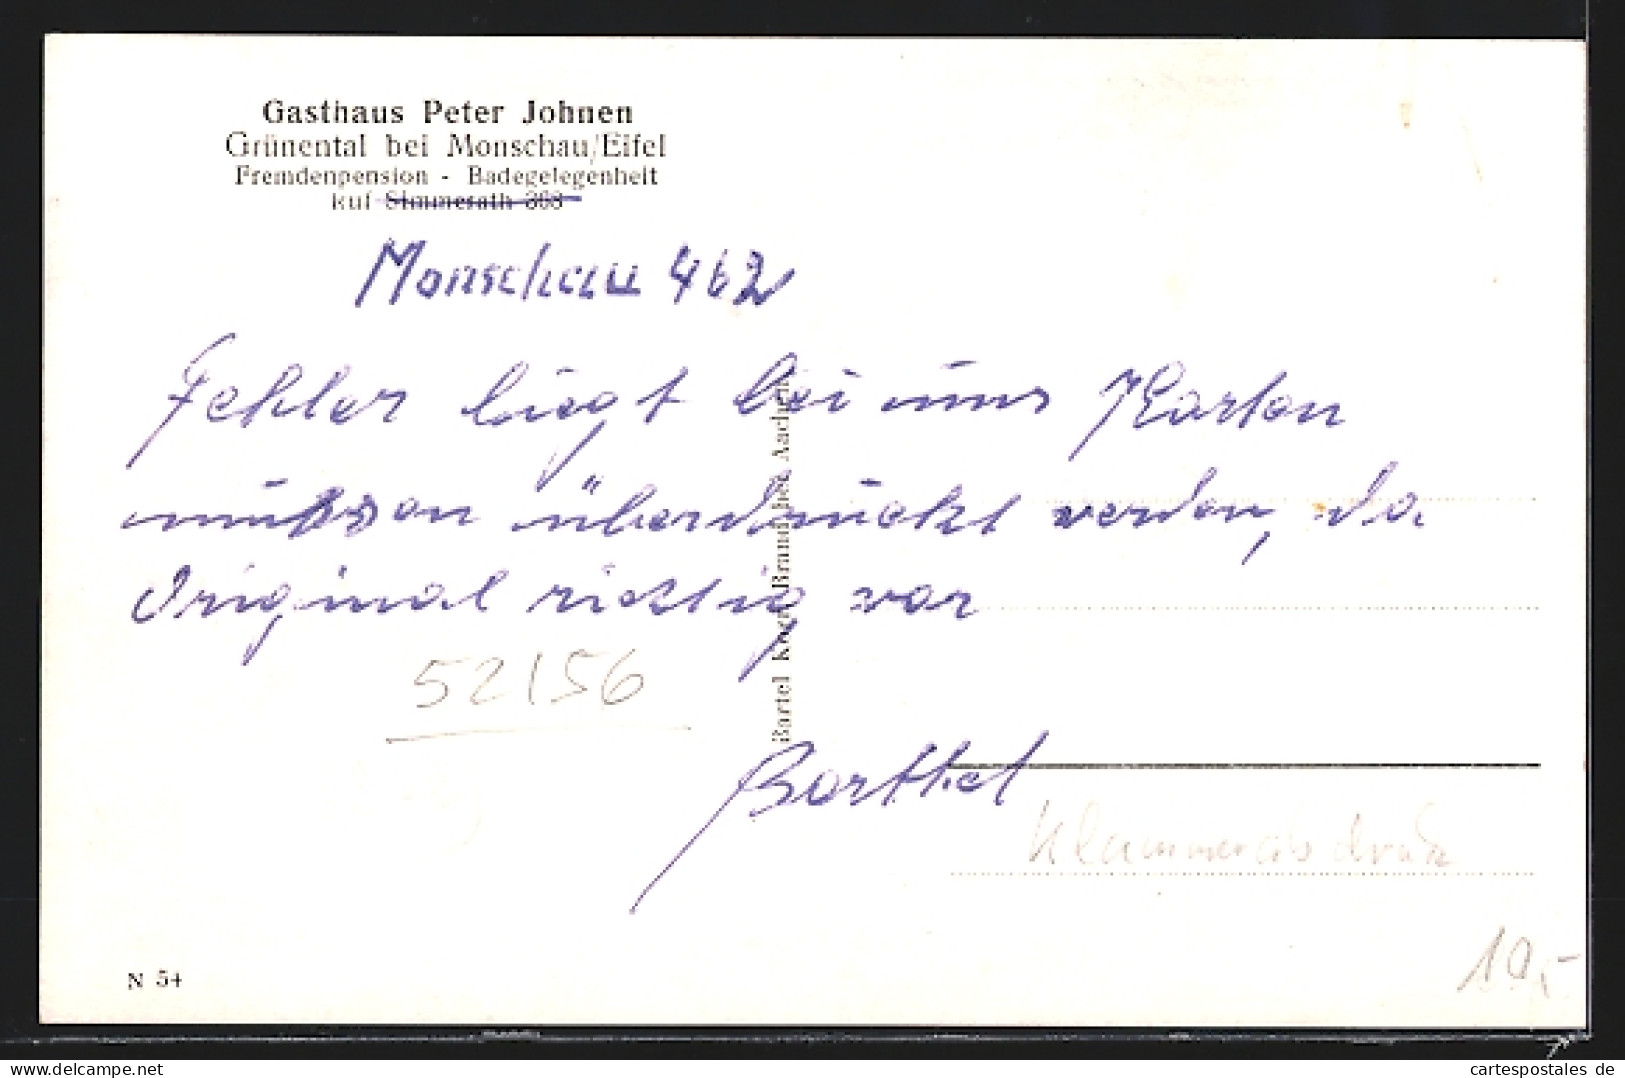 Gasthaus Peter Johnen
Grünental bei Monschau/Eifel
Fremdenpension - Badegelegenheit
Ruf Simmerath 308
Monschau 462
Fehler liegt bei uns Karten
müssen überdruckt werden, da
Original richtig war
52156
Barthel
Klammerabdruck
10,-
Bartel Aachen
N 54
www.delcampe.net
cartespostales de